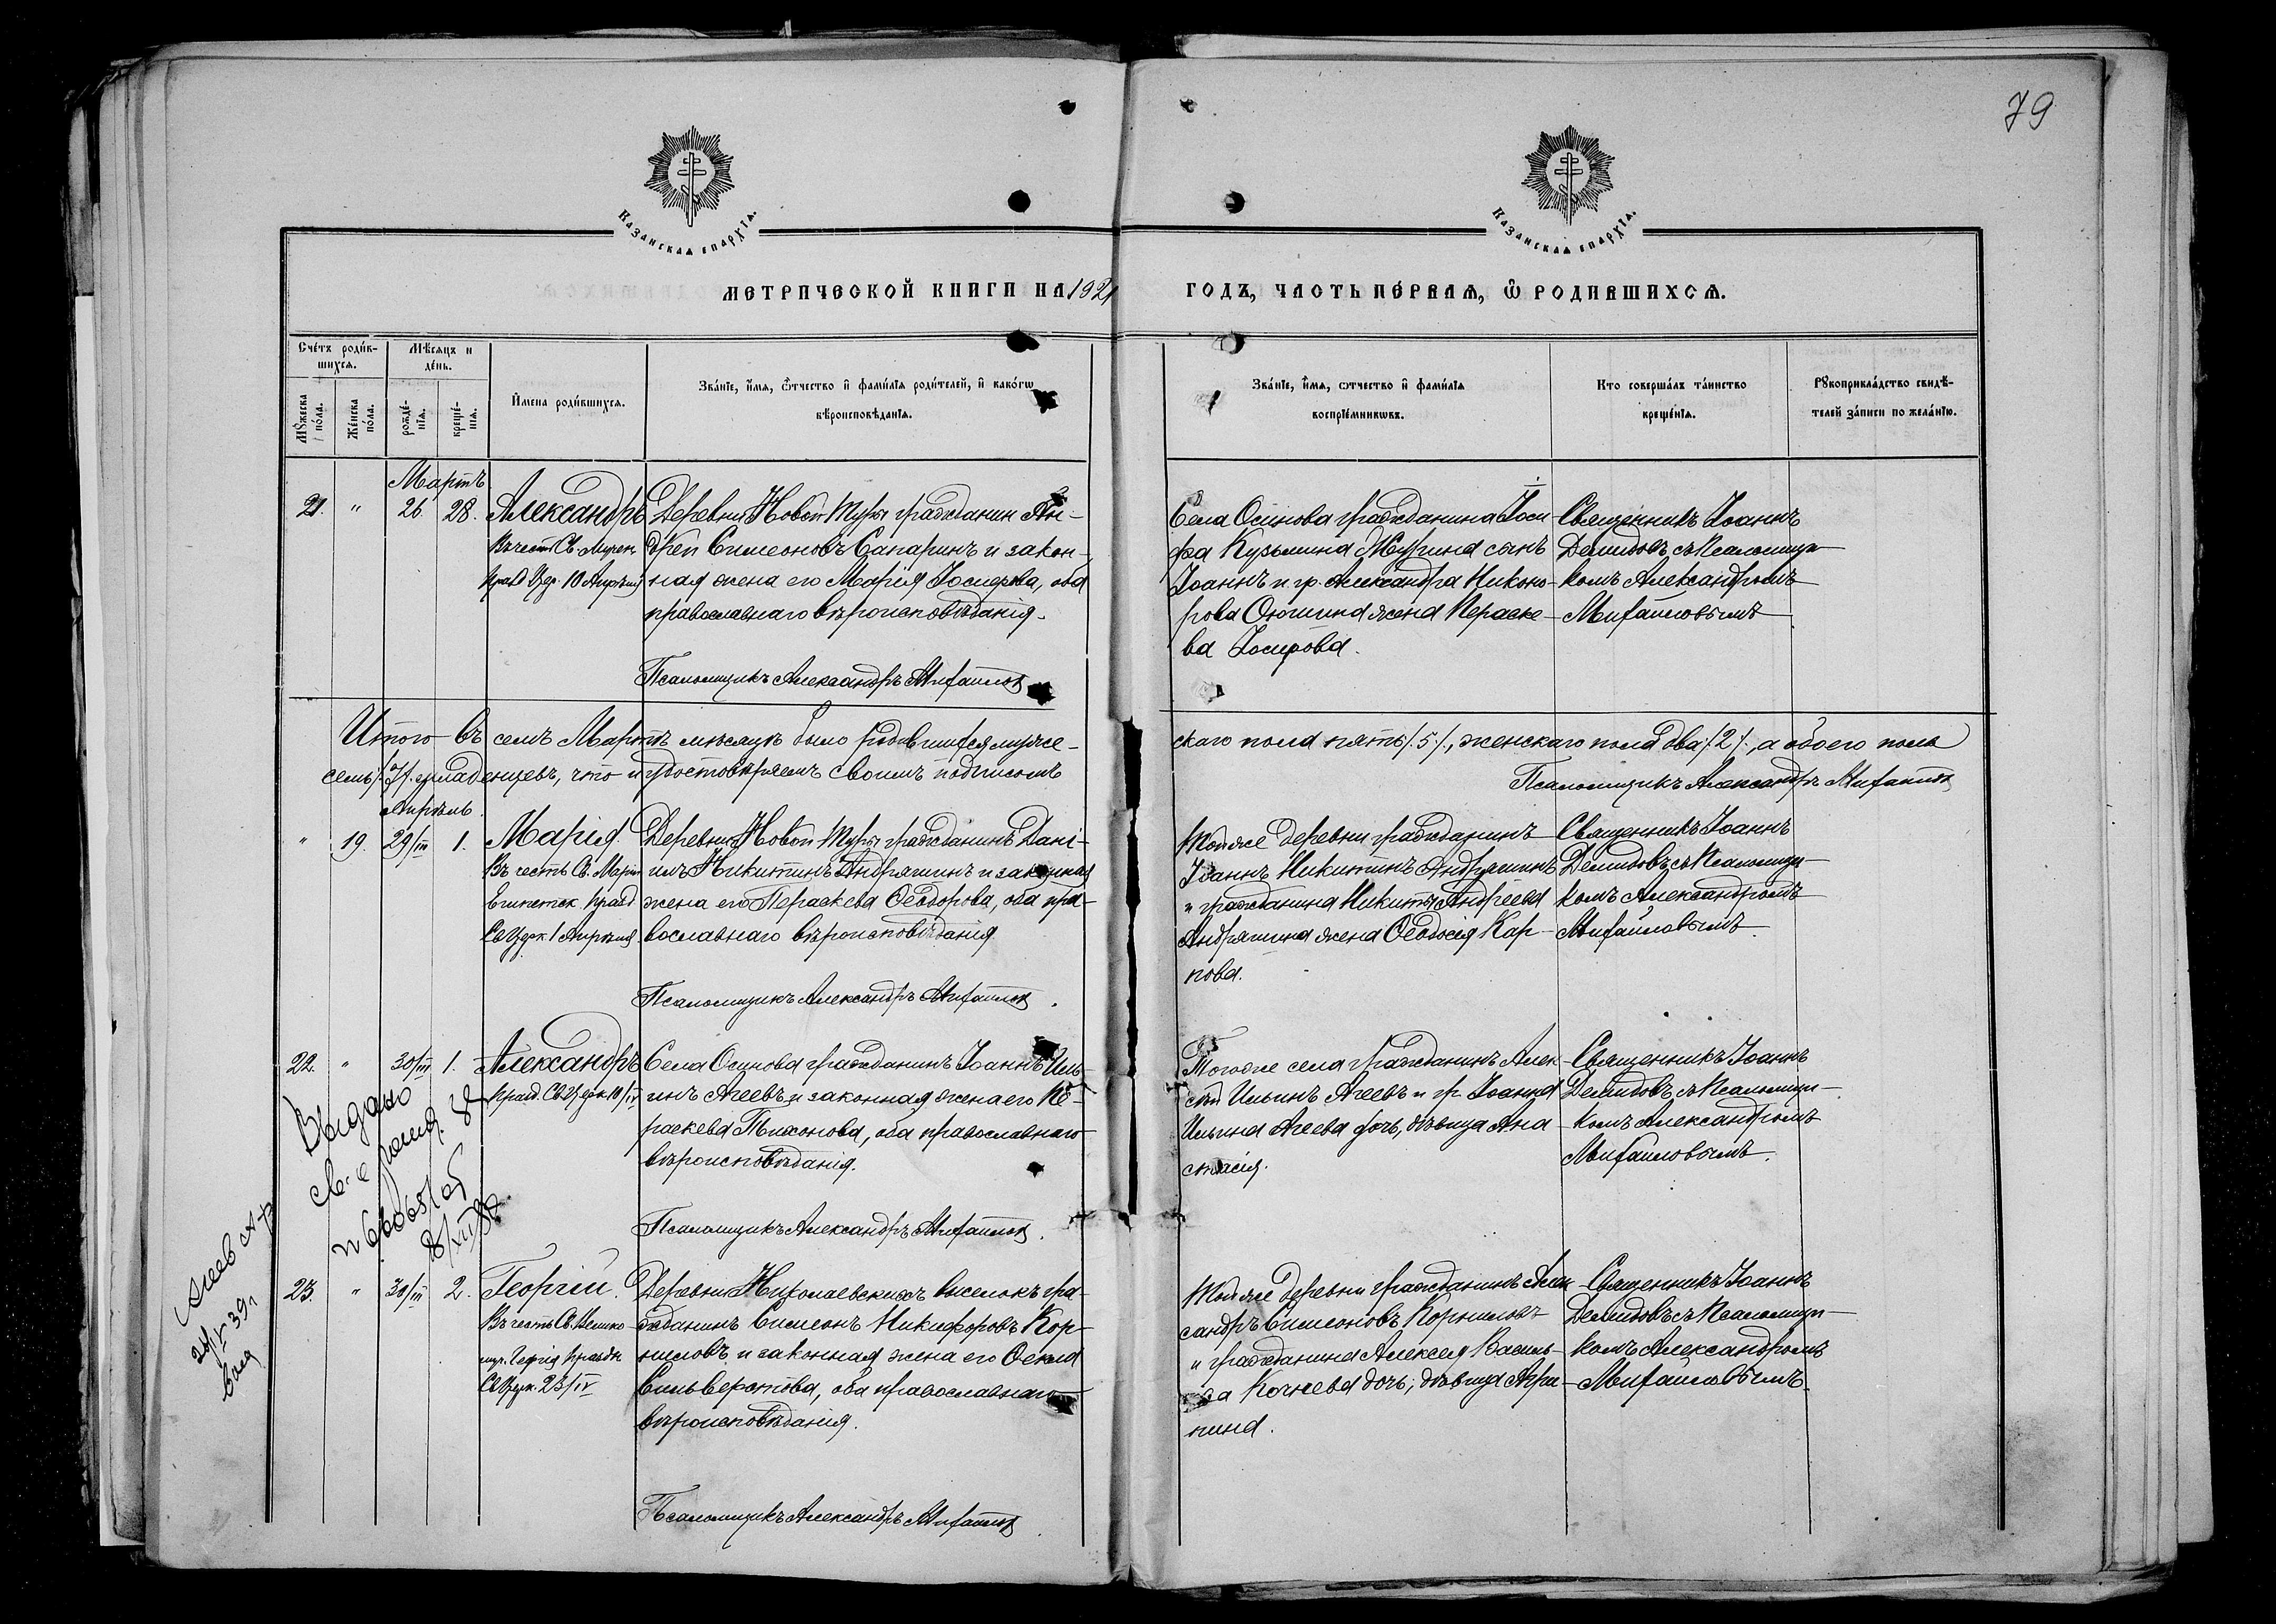 79
Казанская епархїѧ.
Казанская епархїѧ.
МЕТРИЧЕСКОЙ КНИГИ НА 1921
ГОДЪ, ЧАСТЬ ПЕ́РВАЯ, Ѽ РОДИВШИХСЯ.
Сче́тъ роди́в-
шихся.
Мѣ́сяцъ и
де́нь.
Мꙋ́жеска
по́ла.
Же́нска
по́ла.
рожде́-
нїя.
креще́-
нїя.
И҆мена роди́вшихся.
Зва́нїе, и҆́мя, ѻ҆́тчество и҆ фами́лїя роди́телей, и҆ како́гѡ
вѣроисповѣ́данїя.
Зва́нїе, и҆́мя, ѻтчество и҆ фами́лїя
воспрїе́мникѡвъ.
Кто соверша́лъ та́инство
креще́нїя.
Рꙋкоприкла́дство свидѣ́-
телей за́писи по жела́нїю.
Мартъ
21. " 26. 28. Александръ
Въ честь Св. Мучен.
празд. Церк. 10 Апрѣля
Деревни Новой Туры гражданин Ан-
дрей Симеоновъ Сапаринъ и закон-
ная жена его Марія Іосифова, оба
православнаго вѣроисповѣданія.
Псаломщикъ Александръ Михайлов
Села Осинова гражданина Іоси-
фа Кузьмина Мурина сынъ
Іоаннъ и гр. Александра Никоно-
рова Жена Параске-
ва Іосифова.
Священникъ Іоаннъ
Демидовъ съ Псаломщи-
комъ Александромъ
Михайловымъ
Итого въ семъ Мартѣ мѣсяцѣ было родившихся муже-
скаго пола пять /5/, женскаго пола два /2/, а обоего пола
семь /7/ младенцевъ, что и удостовѣряемъ своимъ подписомъ
Псаломщикъ Александръ Михайлов
Апрѣль.
" 19. 29/III 1. Марія.
Въ честь Св. Маріи
Египетск. празд
Св Церк 1 Апрѣля
Деревни Новой Туры гражданинъ Дані-
илъ Никитинъ Андряшинъ и законная
жена его Параскева Ѳеодорова, оба пра-
вославнаго вѣроисповѣданія
Псаломщикъ Александръ Михайлов.
Той же деревни гражданинъ
Іоаннъ Никитинъ Андряшинъ
и гражданина Никиты Андреева
Андряшина жена Ѳеодосія Кар-
пова.
Священникъ Іоаннъ
Демидовъ съ Псаломщи-
комъ Александромъ
Михайловымъ.
22. " 30/III 1. Александръ
празд. Св. Церк 10/IV
Села Осинова гражданинъ Іоаннъ Иль-
инъ Агеевъ и законная жена его Па-
раскева Тихонова, оба православнаго
вѣроисповѣданія.
Псаломщикъ Александръ Михайлов.
Того же села гражданинъ Алек-
сѣй Ильинъ Агеевъ и гр. Іоанна
Ильина Агеева дочь, дѣвица Ана-
стасія.
Священникъ Іоаннъ
Демидовъ съ Псаломщи-
комъ Александромъ
Михайловымъ.
Выдано
св-о
Агеев А-р
23. " 30/III 2. Георгій.
Въ честь Св. Велико-
муч. Георгія праздн
Св Церк. 23/IV
Деревни Николаевскихъ выселокъ гра-
жданинъ Симеонъ Никифоровъ Кор-
ниловъ и законная жена его Ѳекла
Сильверстова, оба православнаго
вѣроисповѣданія.
Псаломщикъ Александръ Михайлов.
Той же деревни гражданинъ Алек
сандръ Симеоновъ Корниловъ
и гражданина Алексея Василь-
ева Кочнева дочь, дѣвица Агри-
пина.
Священникъ Іоаннъ
Демидовъ съ Псаломщи-
комъ Александромъ
Михайловымъ.